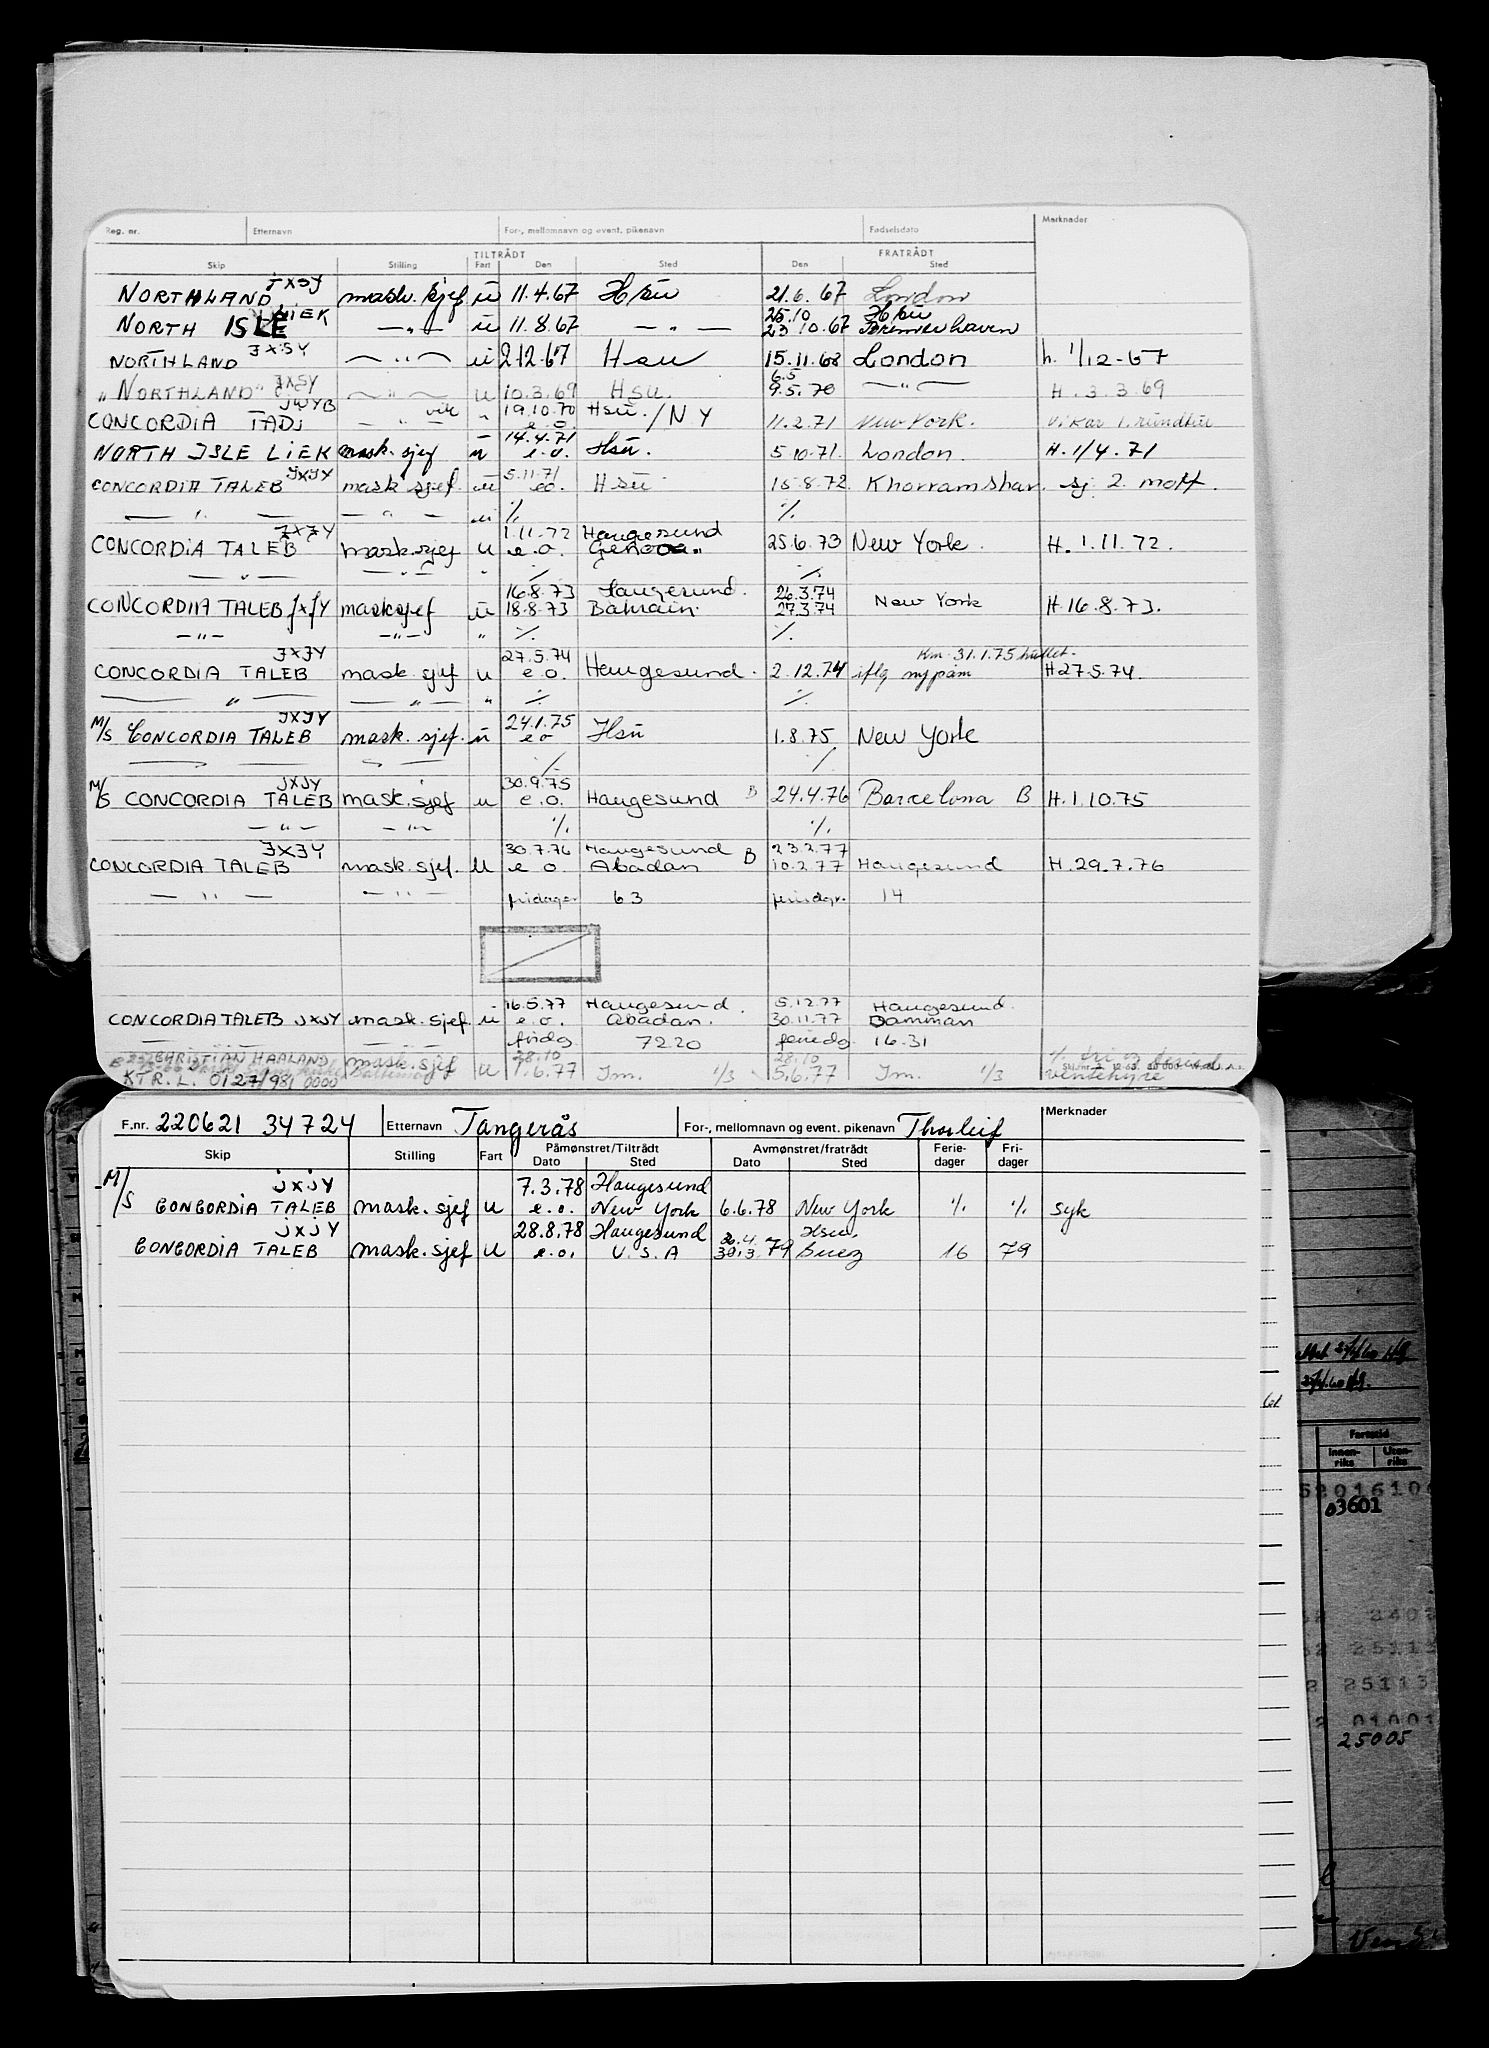 Reg. nr. Etternavn For-, mellomnavn og event. pikenavn Fødselsdato Merknader
TILTRÅDT FRATRÅDT
Skip Stilling Fart Den Sted Den Sted
JXSY
NORTHLAND mask. sjef ü 11.4.67 Hsu 21.6.67 London
LIEK 25.10 Hsu
NORTH ISLE — " — ü 11.8.67 — " — 23.10.67 Bremerhaven
JXSY
NORTHLAND — " — ü 2.12.67 Hsu 15.11.68 London h. 1/12-67
JXSY 6.5
" NORTHLAND " — " — u 10.3.69 Hsu. 9.5.70 — " — H. 3.3.69
JWYB vik 19.10.70 Hsu. / N Y
CONCORDIA TADJ — " — " e.o. 11.2.71 New York. Vikar 1. rundtur
14.4.71
NORTH ISLE LIEK mask. sjef u e.o. Hsu. 5.10.71. London. H. 1/4.71
JXJY 5.11.71
CONCORDIA TALEB mask sjef. ü e.o. Hsü 15.8.72 Khorramshar. sj 2. mott.
— " — — " — ü ./. ./.
JXJY 1.11.72 Haugesund
CONCORDIA TALEB mask.sjef u e.o. Genoa " 25.6.73 New York. H. 1.11.72.
— " — — " — " ./. ./.
16.8.73 Haugesund. 26.3.74
CONCORDIA TALEB JXJY masksjef ü 18.8.73 Bahrain. 27.3.74 New York H.16.8.73.
— " — — " — " ./. ./.
JXJY 27.5.74 Km. 31.1.75 hullet.
CONCORDIA TALEB mask sjef u e.o. Haugesund. 2.12.74 iflg nypåm H27.5.74.
— " — — " — " ./. ./.
JXJY 24.1.75
M/S CONCORDIA TALEB mask. sjef. ü e.o Hsü 1.8.75 New York
— " — — " — ./. ./.
JXJY 30.9.75
M/S CONCORDIA TALEB mask. sjef u e.o. Haugesund B 24.4.76 Barcelona B H.1.10.75
— " — — " — ./. ./.
JXJY 30.7.76 Haugesund 23.2.77
CONCORDIA TALEB mask.sjef. u e.o. Abadan B 10.2.77 Haugesund H.29.7.76
— " — — " — fridager 63 feriedgr. 14
16.5.77 Haugesund. 5.12.77 Haugesund.
CONCORDIA TALEB JXJY mask. sjef. ü e.o. Abadan. 30.11.77 Damman
— — fridg 72.20 feriedg. 16.31
CHRISTIAN HAALAND 28.10 28.10
mask. sjef u 1.6.77 Jm. 1/3 5.6.77 Jm. 1/3 ventehyre
KTR. L. 0127/981 0000
F.nr. 220621 34724 Etternavn Tangerås For-, mellomnavn og event. pikenavn Thorleif Merknader
Skip Stilling Fart Påmønstret/Tiltrådt Avmønstret/fratrådt Ferie- Fri-
Dato Sted Dato Sted dager dager
JXJY 7.3.78 Haugesund
M/S CONCORDIA TALEB mask. sjef u e.o. New York 6.6.78 New York ./. ./. syk
JXJY 28.8.78 Haugesund Hsu.
CONCORDIA TALEB mask. sjef u e.o. U.S.A 30.3.79 Suez 16 79
Fartstid
Innen- Uten-
riks riks
03601
25113
25113
25005